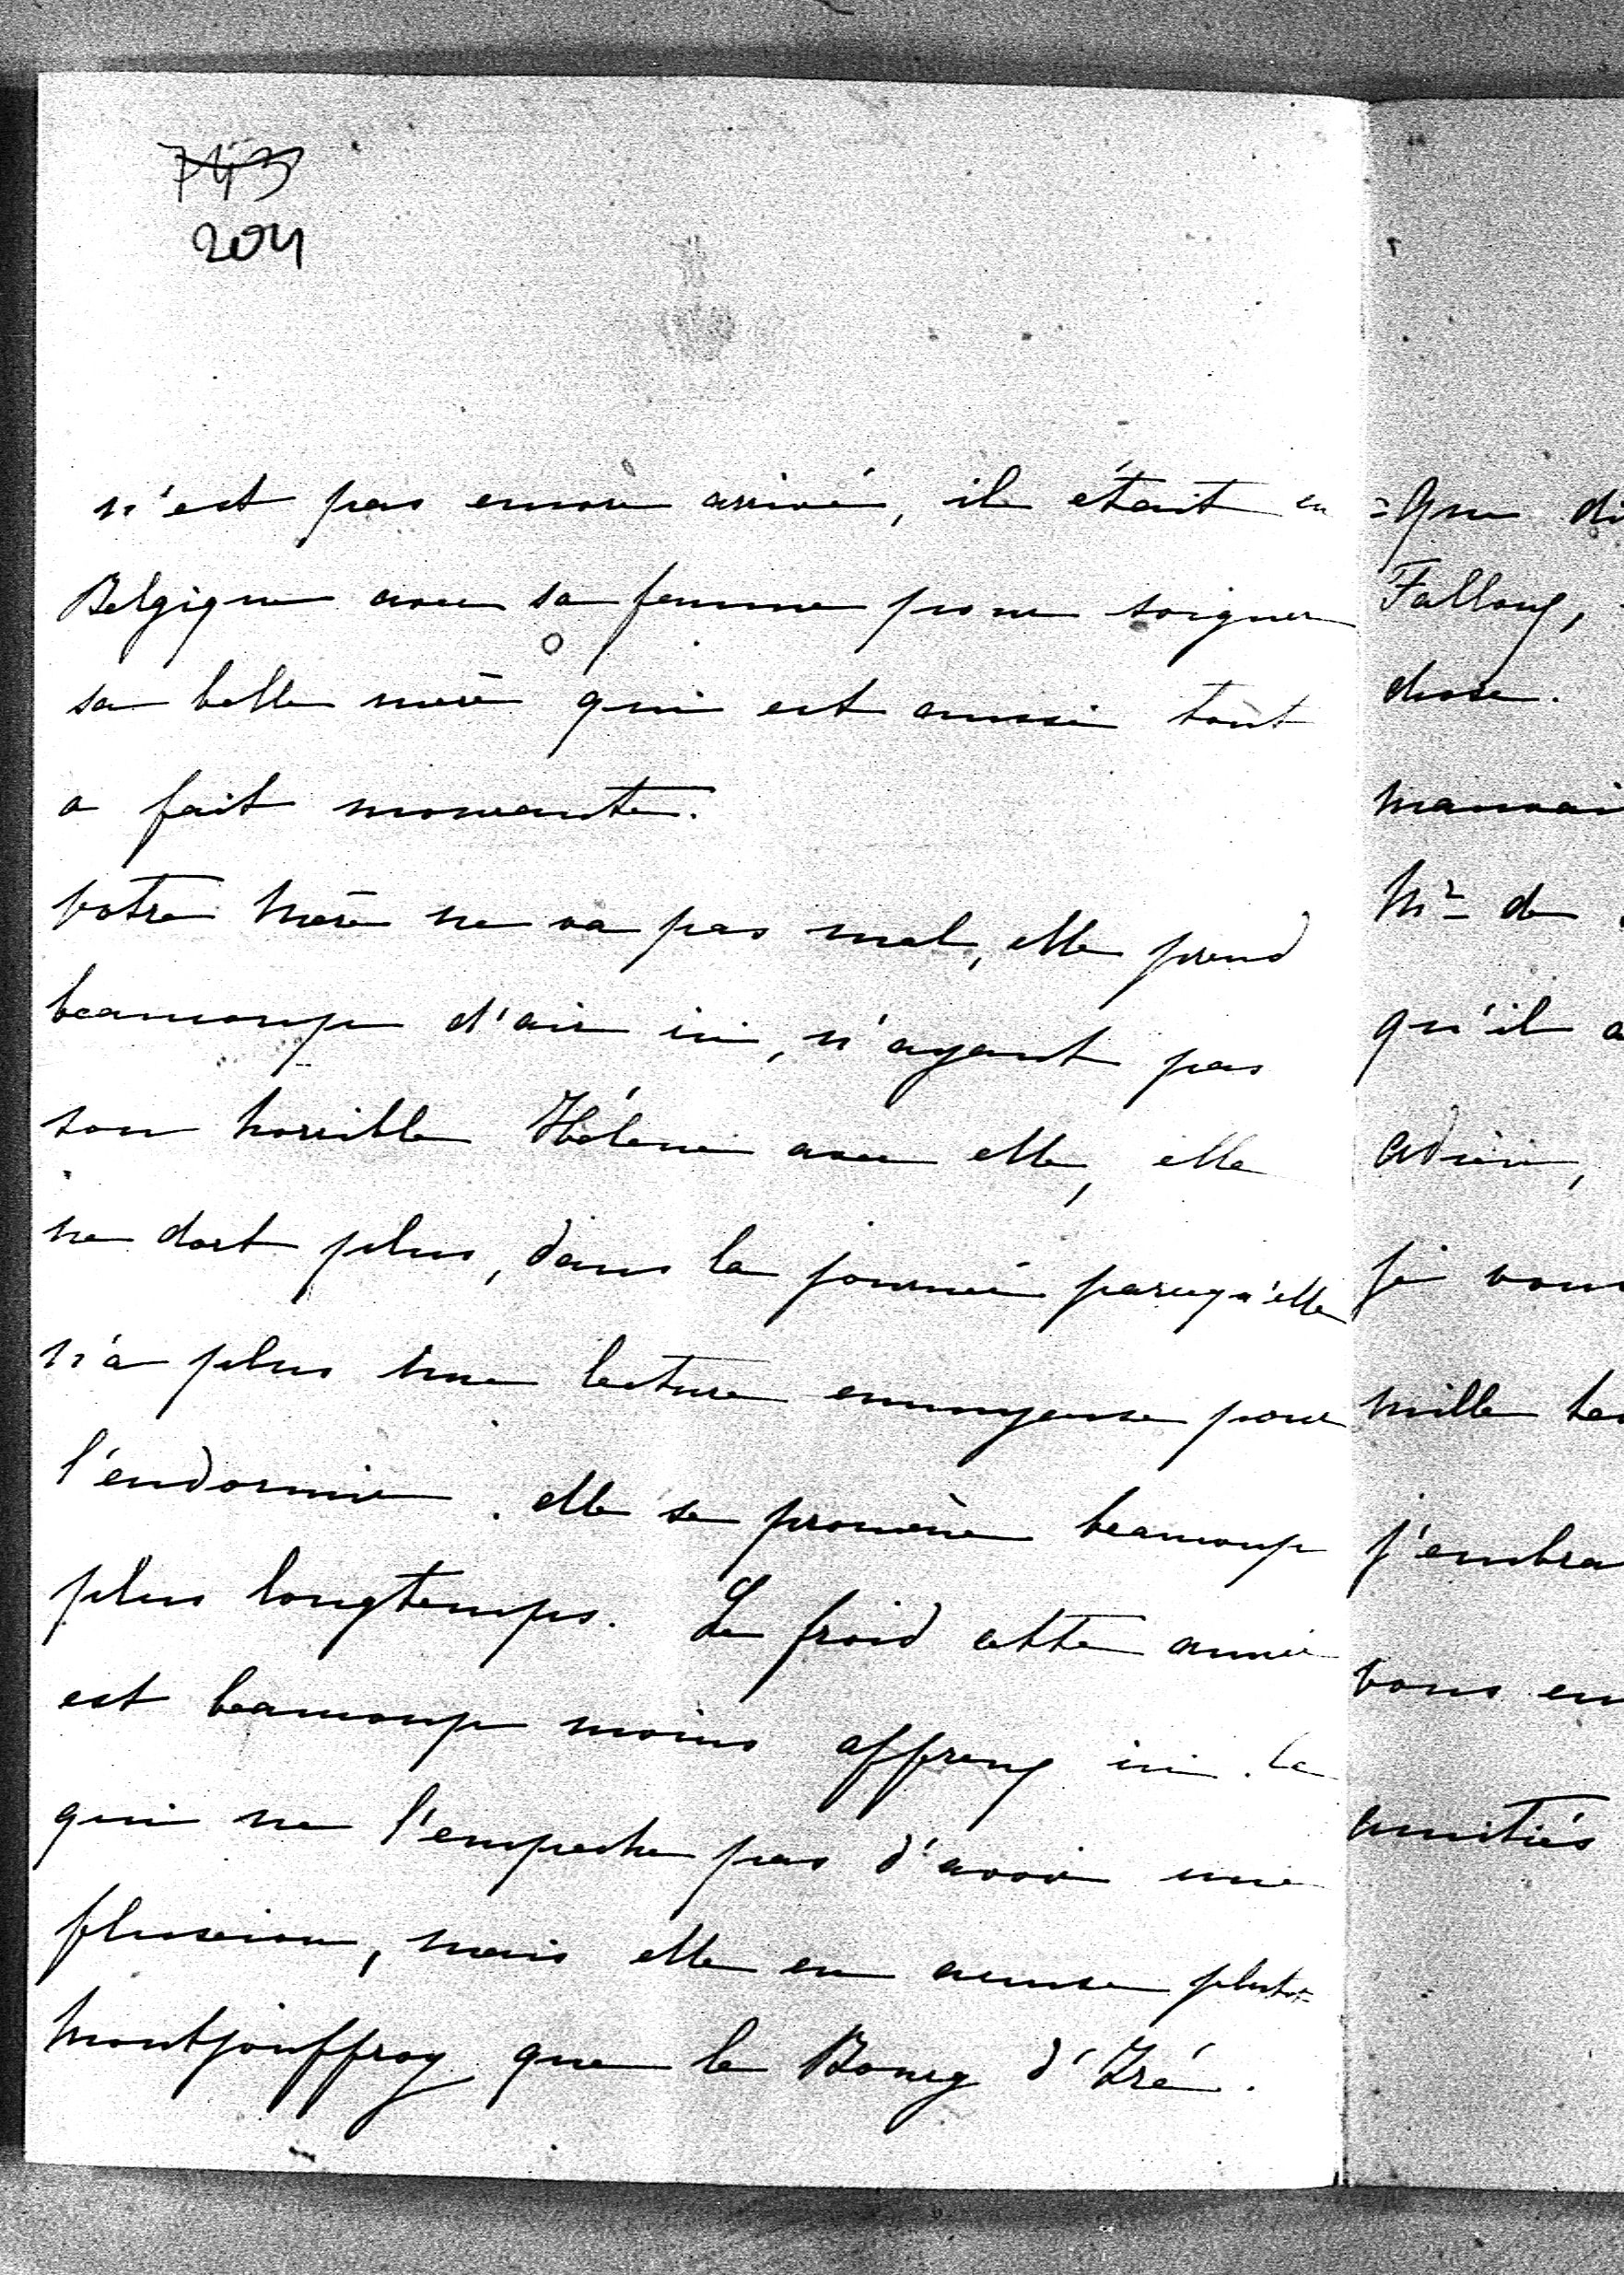 743
204
n'est pas encore arrivé, il était en
Belgique avec sa femme pour soigner
sa belle mère qui est aussi tout
a fait mourante.
votre mère ne va pas mal, elle prend
beaucoup d'air ici, n'ayant pas
son horrible Hélène avec elle, elle
ne dort plus, dans la journée parcequ'elle
n'a plus une lecture ennuyeuse pour
l'endormir. elle se promène beaucoup
plus longtemps. Le froid cette année
est beaucoup moins affreux ici. Ce
qui ne l'empeche pas d'avoir une
fluxion, mais elle en accuse plutot
montjouffroy que le Bourg d'Iré.
=que di
Falloux,
chose.
mauvai
Mr de
qu'il a
adieu,
je vous
mille te
j'embra
vous en
amitiés